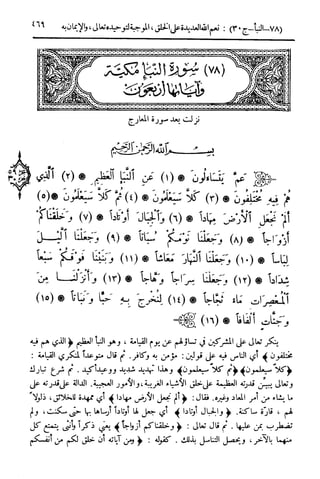 (٧٨-النبأ-ج ٣٠) : نعم الله العديدة على الخلق، الموجبة لتوحيده تعالى، والإيمان به ٤٦٩
(٧٨) سورة النبإ مكية
وآياتها أربعون
نزلت بعد سورة المعارج
بسم الله الرحمن الرحيم
عم يتساءلون * (١) عن النبأ العظيم * (٢) الذي
هم فيه مختلفون * (٣) كلا سيعلمون * (٤) ثم كلا سيعلمون * (٥)
ألم نجعل الأرض مهادا * (٦) والجبال أوتادا * (٧) وخلقناكم
أزواجا * (٨) وجعلنا نومكم سباتا * (٩) وجعلنا الليل
لباسا * (١٠) وجعلنا النهار معاشا * (١١) وبنينا فوقكم سبعا
شدادا * (١٢) وجعلنا سراجا وهاجا * (١٣) وأنزلنا من
المعصرات ماء ثجاجا * (١٤) لنخرج به حبا ونباتا * (١٥)
وجنات ألفافا * (١٦)
ينكر تعالى على المشركين في تساؤلهم عن يوم القيامة، وهو النبأ العظيم ﴿ الذي هم فيه
مختلفون ﴾ أي الناس فيه على قولين: مؤمن به وكافر. ثم قال متوعداً لمنكري القيامة :
﴿كلا سيعلمون﴾ ﴿ثم كلا سيعلمون﴾ وهذا تهديد شديد ووعيد أكيد. ثم شرع تبارك
وتعالى يبيّن قدرته العظيمة على خلق الأشياء الغريبة، والأمور العجيبة. الدالة على قدرته على
ما يشاء من أمر المعاد وغيره. فقال: ﴿ألم نجعل الأرض مهاداً﴾ أي ممهدة للخلائق، ذلولاً
لهم، قارّة ساكنة. ﴿والجبال أوتاداً﴾ أي جعل لها أوتاداً أرساها بها حتى سكنت، ولم
تضطرب بمن عليها. ثم قال تعالى: ﴿وخلقناكم أزواجاً﴾ يعني ذكراً وأنثى يتمتع كل
منهما بالآخر، ويحصل التناسل بذلك. كقوله: ﴿ومن آياته أن خلق لكم من أنفسكم